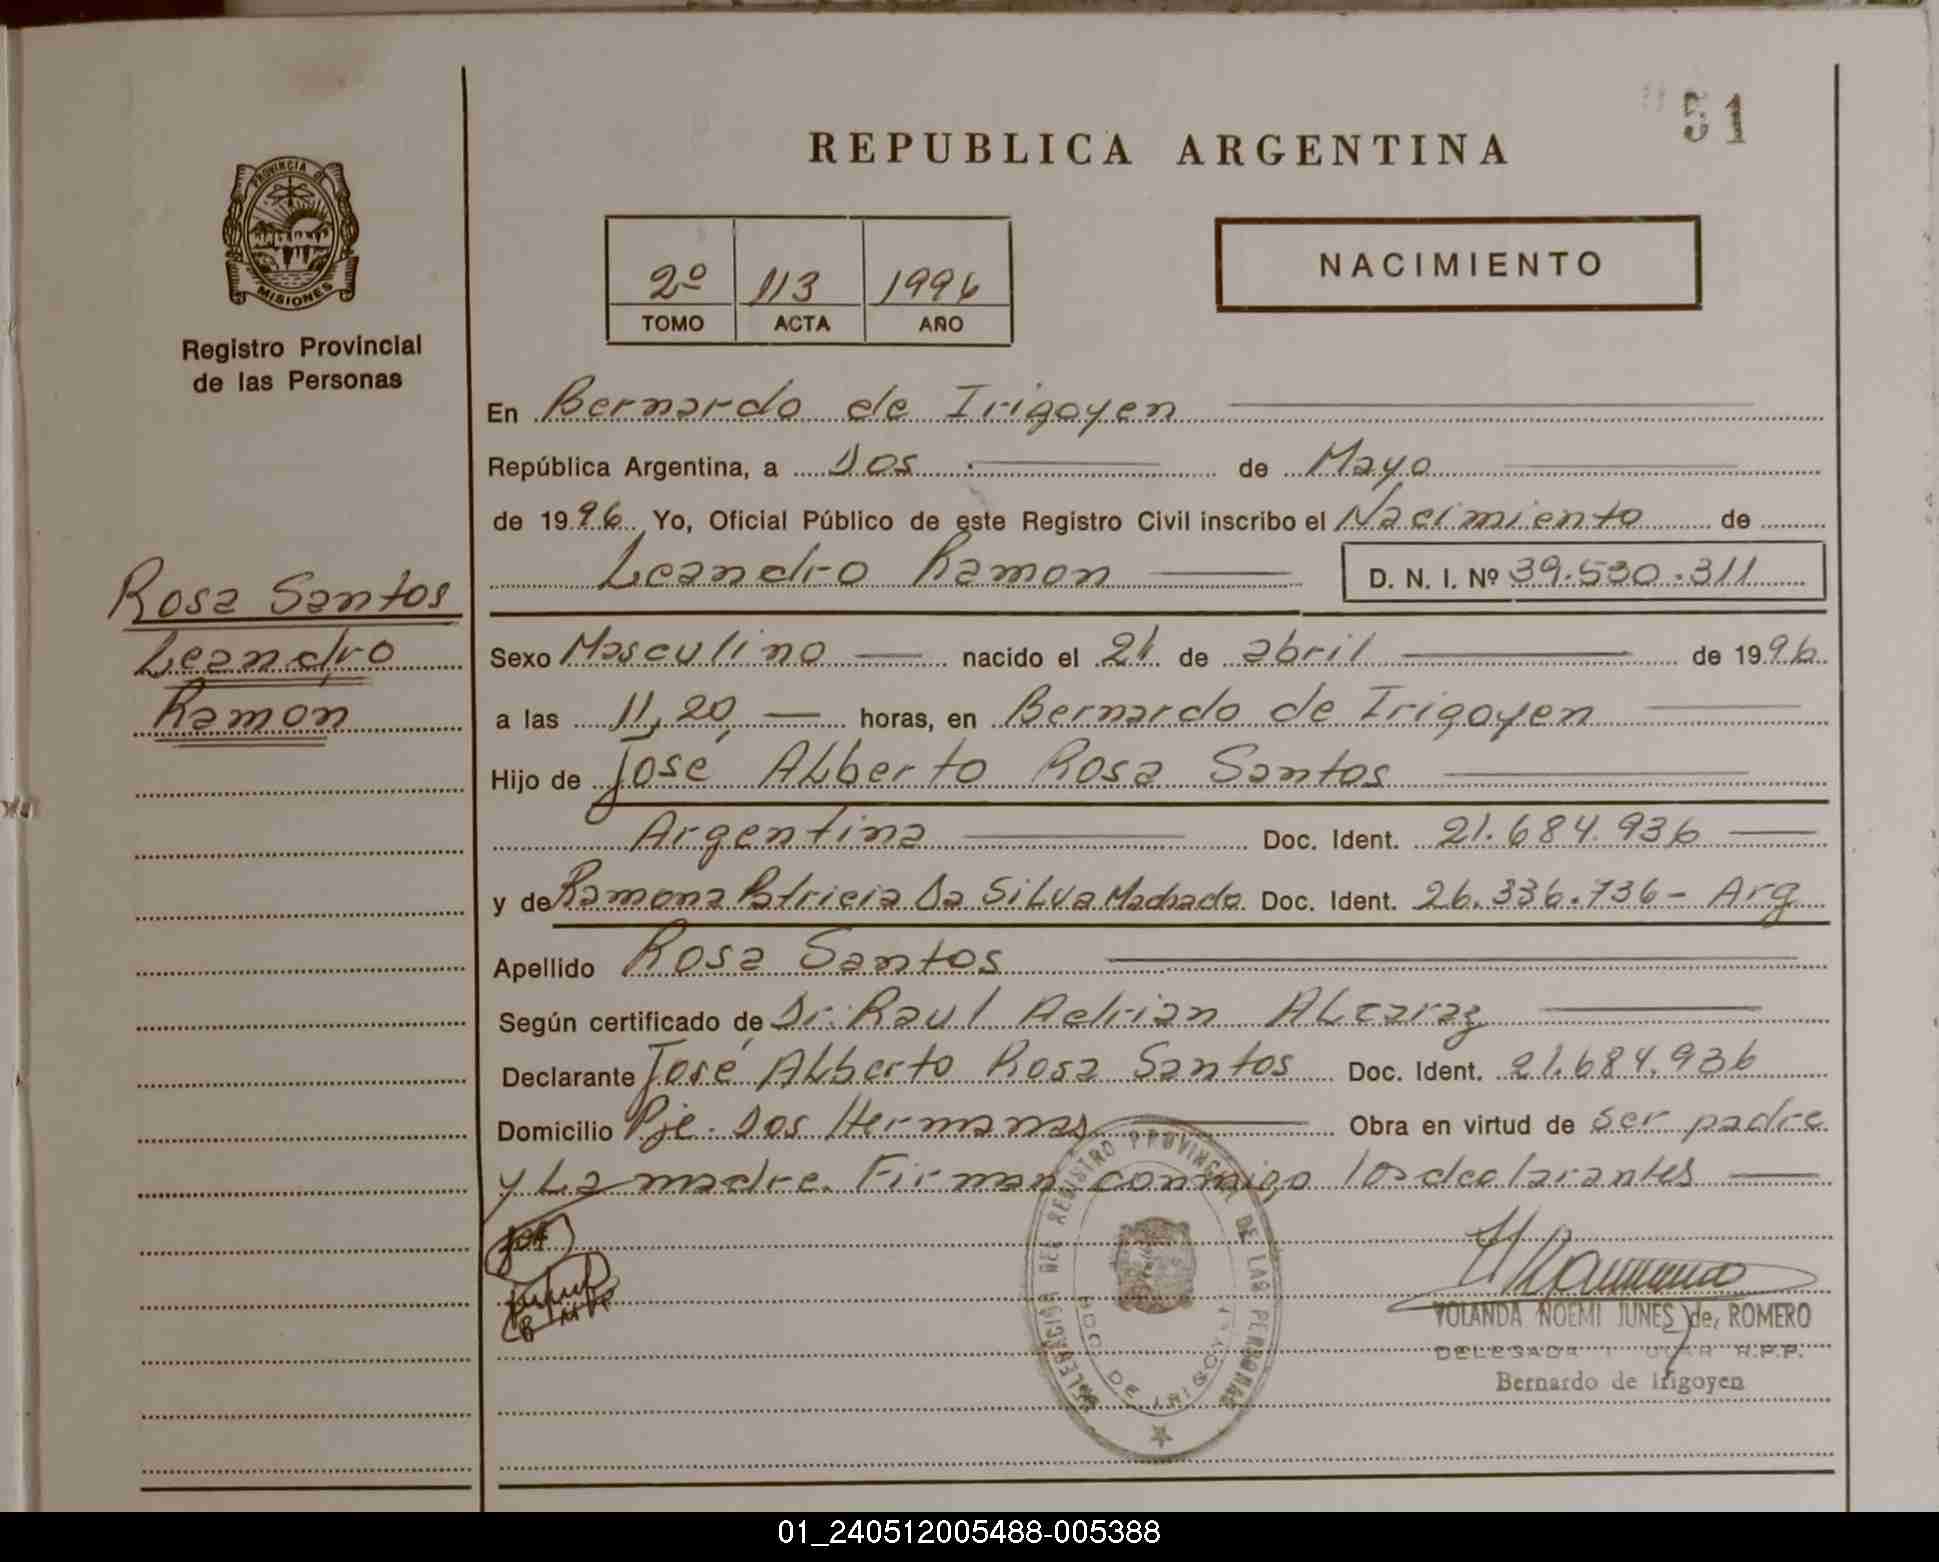 51
REPUBLICA ARGENTINA
PROVINCIA DE
MISIONES
Registro Provincial
de las Personas
2º 113 1996
TOMO ACTA AÑO
NACIMIENTO
En Bernardo de Irigoyen
República Argentina, a Dos de Mayo
de 1996 Yo, Oficial Público de este Registro Civil inscribo el Nacimiento de
Leandro Ramon D. N. I. Nº 39.530.311
Rosa Santos
Leandro
Ramon
Sexo Masculino nacido el 21 de abril de 1996
a las 11,20 horas, en Bernardo de Irigoyen
Hijo de José Alberto Rosa Santos
Argentina Doc. Ident. 21.684.936
y de Ramona Patricia Da Silva Machado Doc. Ident. 26.336.736 - Arg
Apellido Rosa Santos
Según certificado de Dr. Raul Adrian Alcaraz
Declarante José Alberto Rosa Santos Doc. Ident. 21.684.936
Domicilio Pje. Dos Hermanas Obra en virtud de ser padre
y La madre. Firman conmigo los declarantes
DELEGACION DEL REGISTRO PROVINCIAL DE LAS PERSONAS
BDO. DE IRIGOYEN
YOLANDA NOEMI JUNES de ROMERO
R.P.P.
Bernardo de Irigoyen
01_240512005488-005388